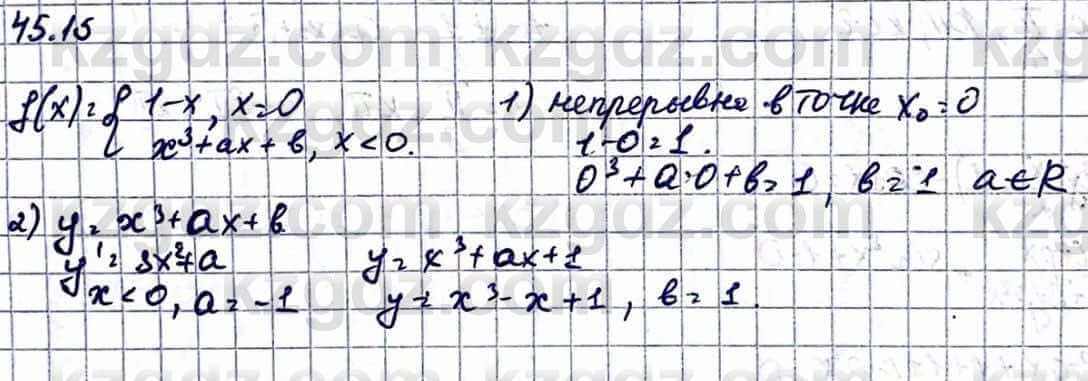 45.15
f(x) = { 1-x, x=0
x³+ax+в, x<0.
1) непрерывна в точке x₀=0
1-0=1.
0³+a·0+в=1, в=1 a∈R
2) y=x³+ax+в
y'=3x²+a
x<0, a=-1
y=x³+ax+1
y=x³-x+1, в=1.
kzgdz.com